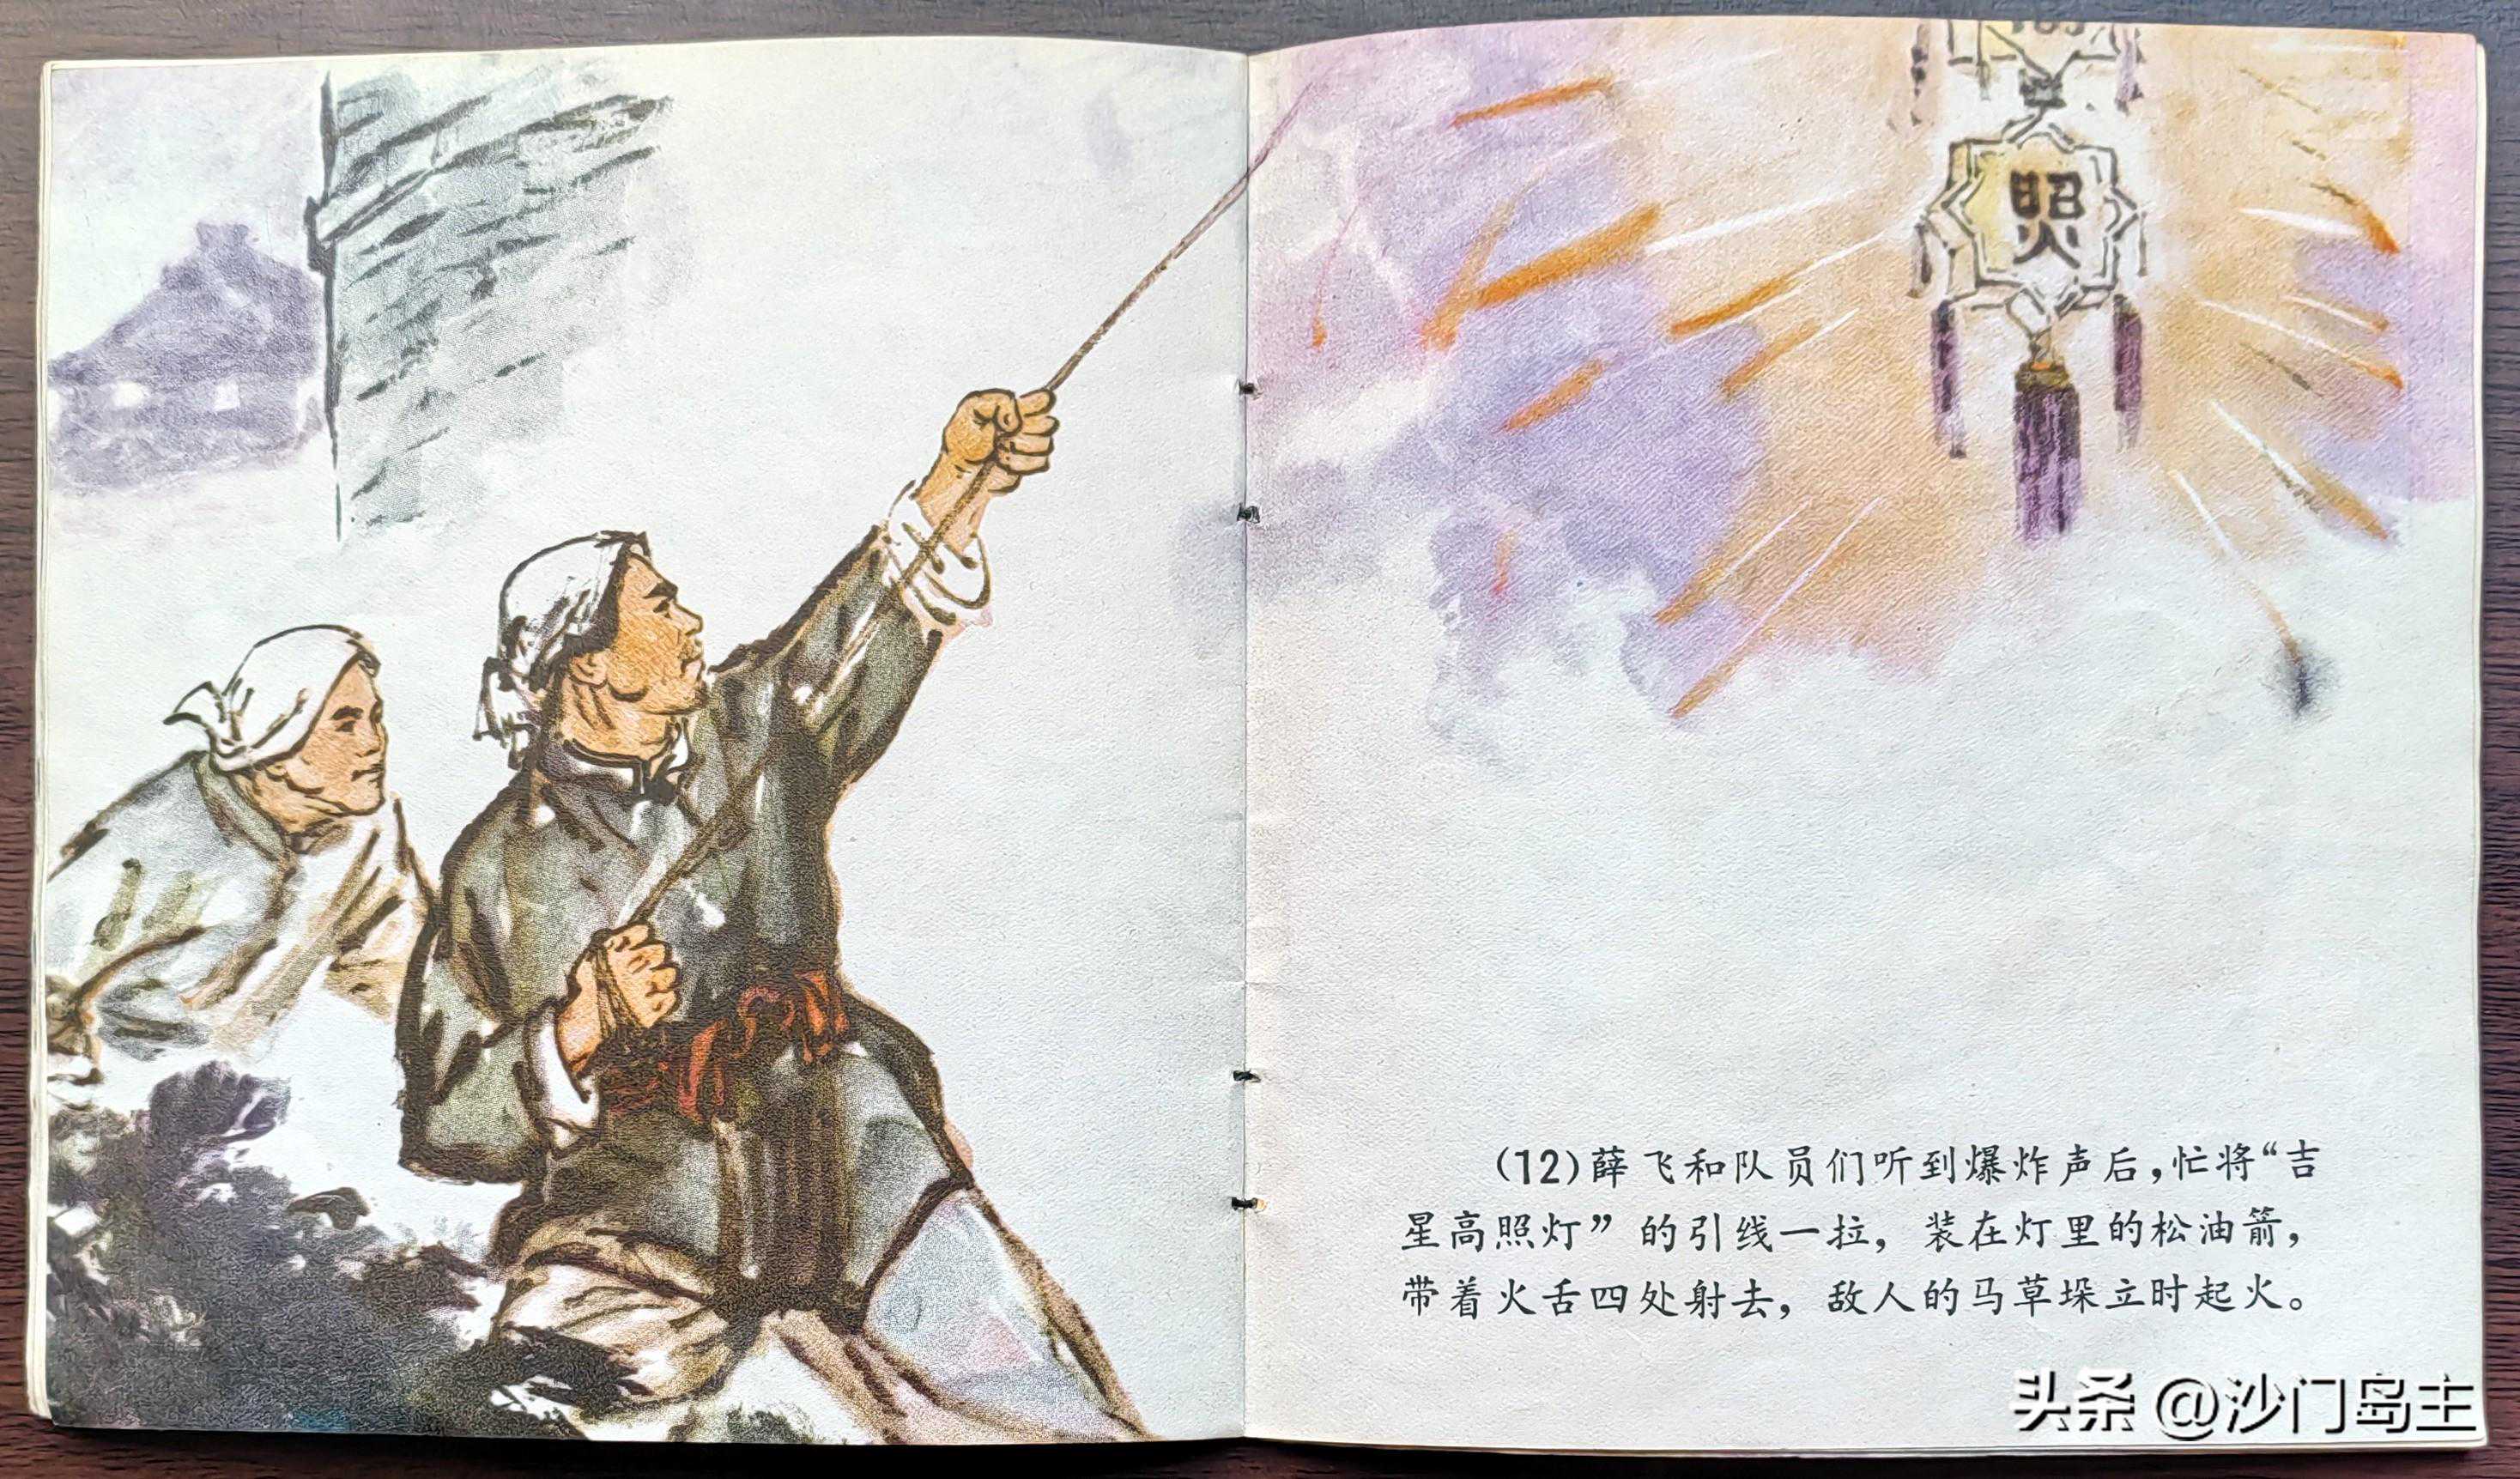 照
(12)薛飞和队员们听到爆炸声后,忙将“吉
星高照灯”的引线一拉，装在灯里的松油箭，
带着火舌四处射去，敌人的马草垛立时起火。
头条 @沙门岛主